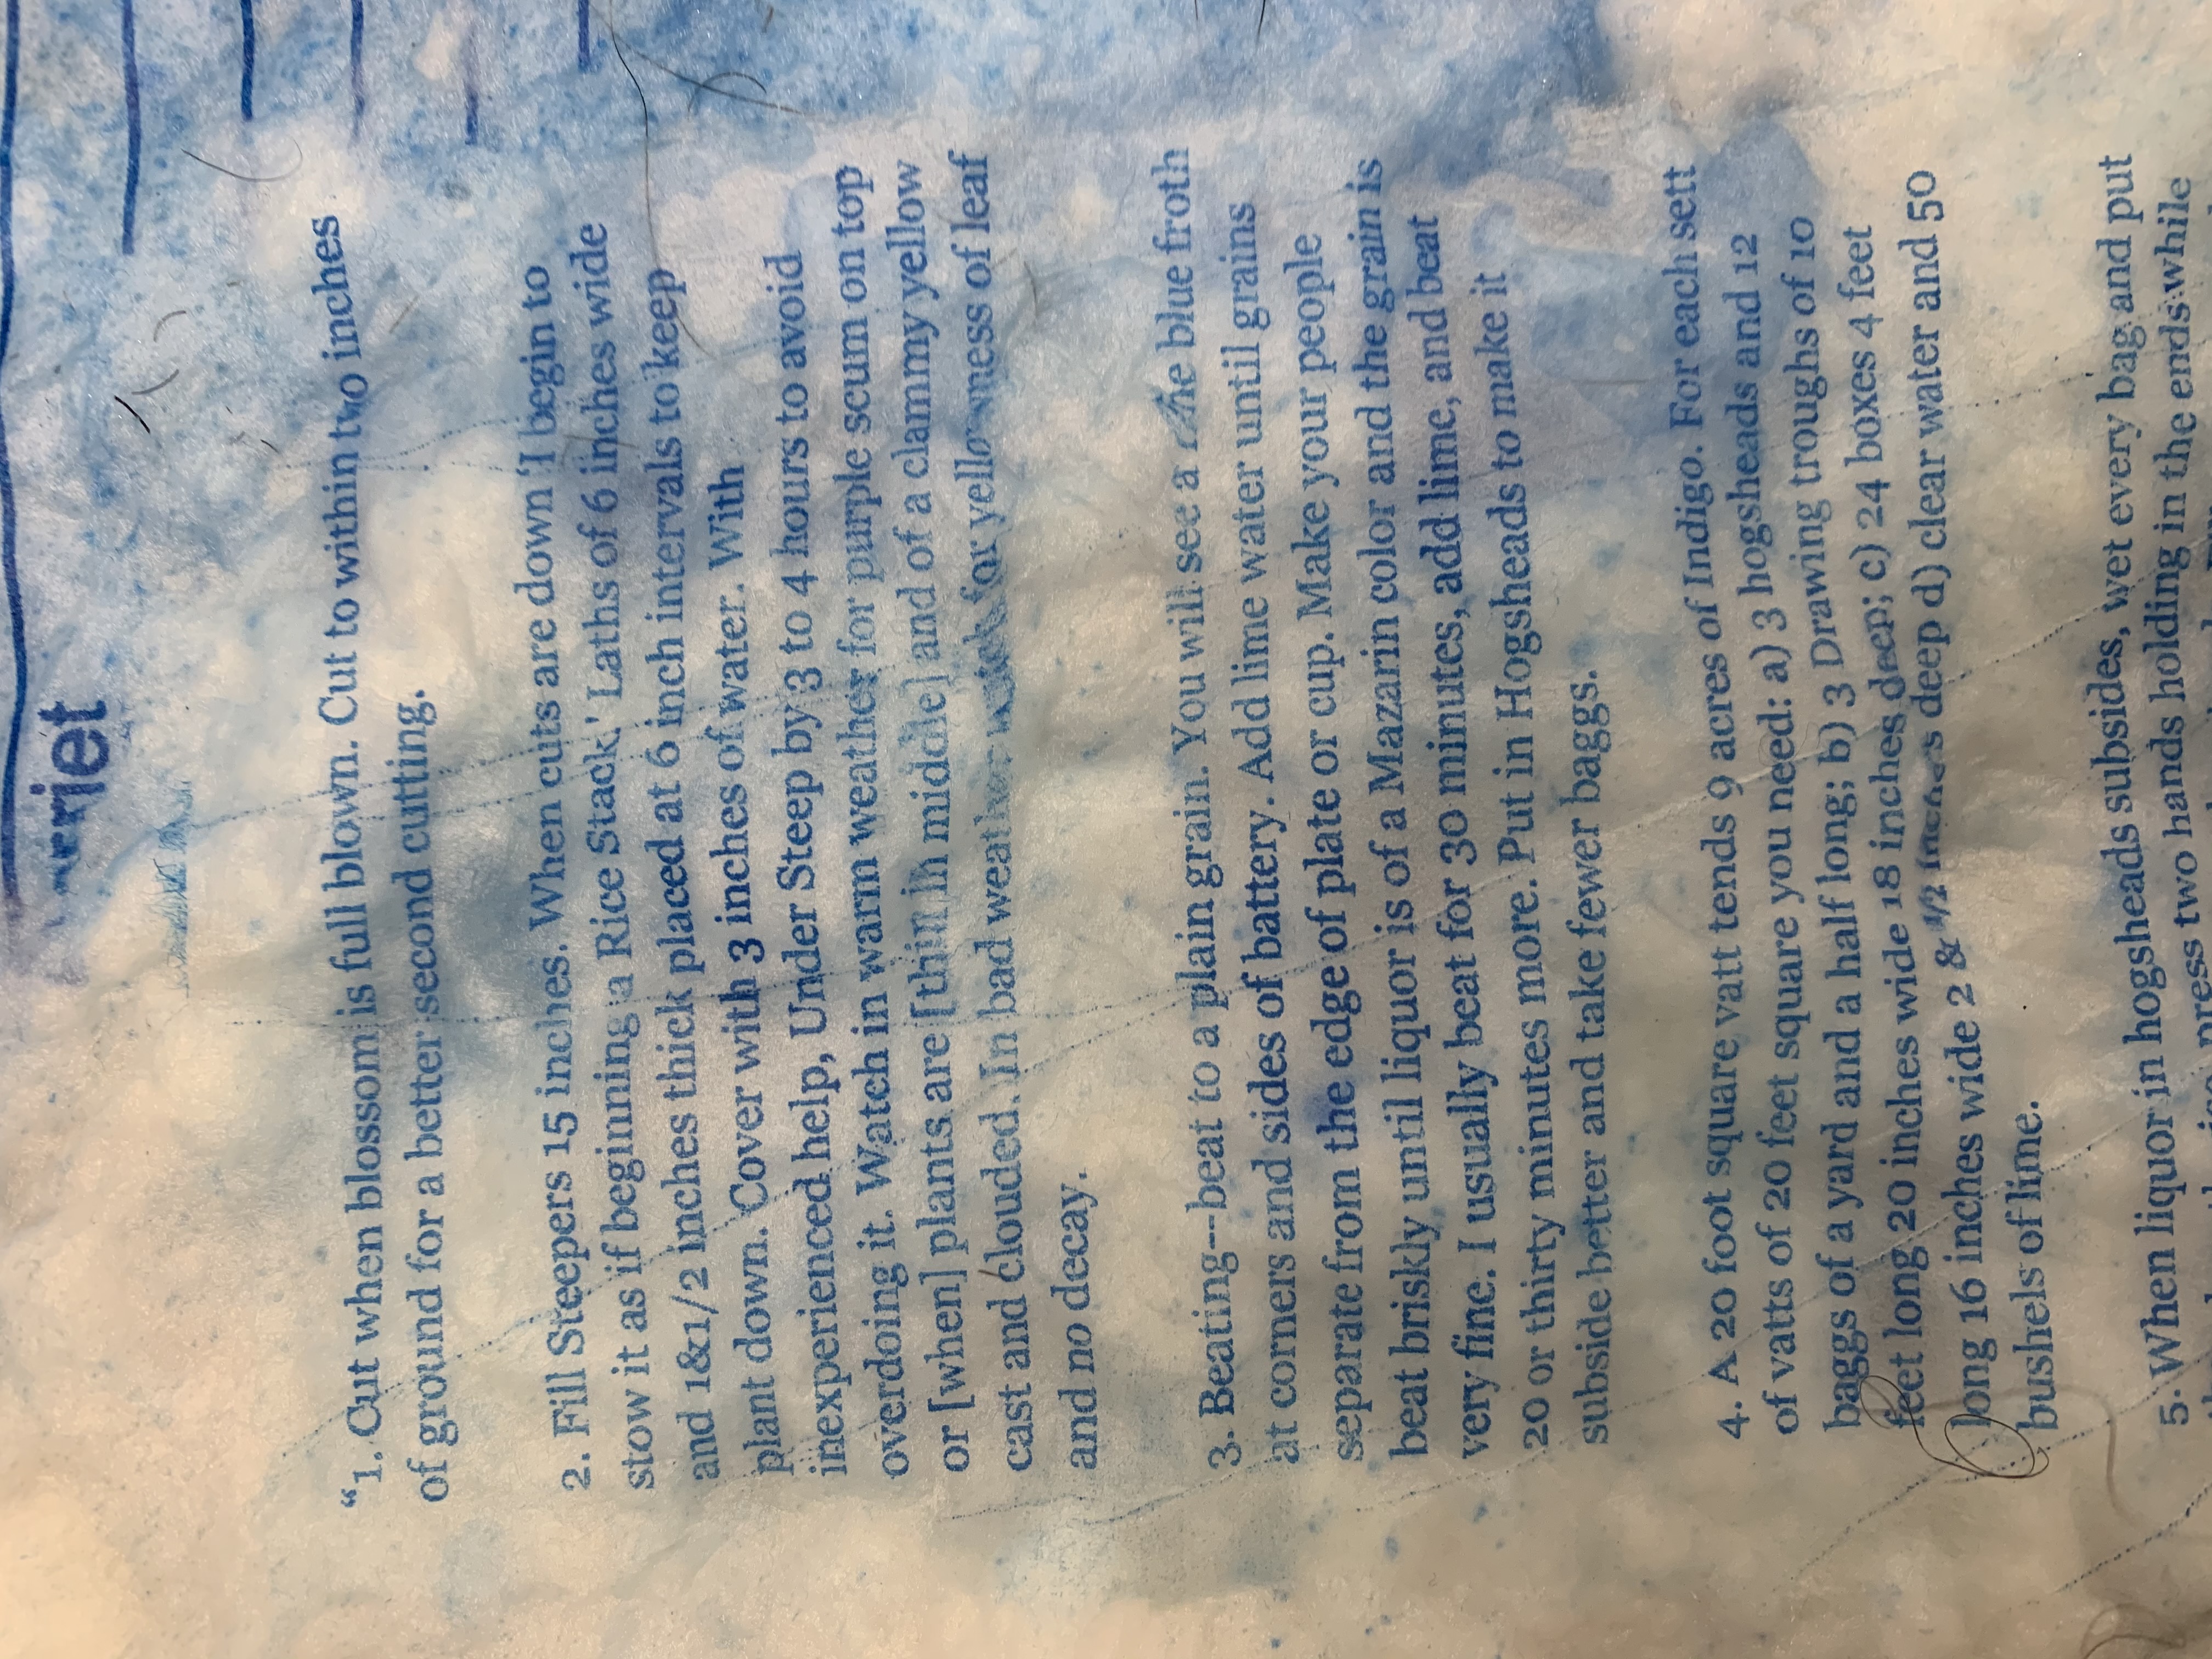 rriet
“1. Cut when blossom is full blown. Cut to within two inches
of ground for a better second cutting.
2. Fill Steepers 15 inches. When cuts are down 'I begin to
stow it as if beginning a Rice Stack.' Laths of 6 inches wide
and 1&1/2 inches thick placed at 6 inch intervals to keep
plant down. Cover with 3 inches of water. With
inexperienced help, Under Steep by 3 to 4 hours to avoid
overdoing it. Watch in warm weather for purple scum on top
or [when] plants are [thin in middle] and of a clammy yellow
cast and clouded. In bad weather watch for yellowness of leaf
and no decay.
3. Beating--beat to a plain grain. You will see a fine blue froth
at corners and sides of battery. Add lime water until grains
separate from the edge of plate or cup. Make your people
beat briskly until liquor is of a Mazarin color and the grain is
very fine. I usually beat for 30 minutes, add lime, and beat
20 or thirty minutes more. Put in Hogsheads to make it
subside better and take fewer baggs.
4. A 20 foot square vatt tends 9 acres of Indigo. For each sett
of vatts of 20 feet square you need: a) 3 hogsheads and 12
baggs of a yard and a half long; b) 3 Drawing troughs of 10
feet long 20 inches wide 18 inches deep; c) 24 boxes 4 feet
long 16 inches wide 2 & 1/2 inches deep d) clear water and 50
bushels of lime.
5. When liquor in hogsheads subsides, wet every bag and put
press two hands holding in the ends while